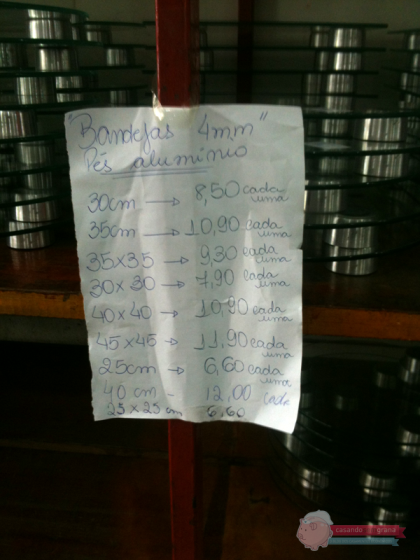 "Bandejas 4mm"
Pés alumínio
30cm → 8,50 cada uma
35cm → 10,90 cada uma
35x35 → 9,30 cada uma
30x30 → 7,90 cada uma
40x40 → 10,90 cada uma
45x45 → 11,90 cada uma
25cm → 6,60 cada uma
40 cm - 12,00 cada
25x25 cm 6,60
casando grana